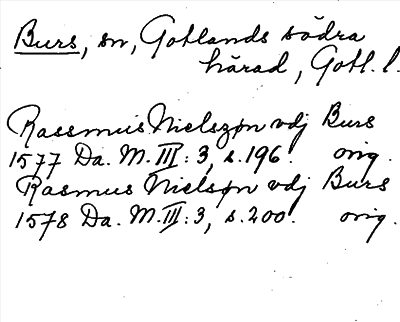 Burs, sn, Gotlands södra
härad, Gotl. l.
Rassmus Nielszøn vdj Burs
1577 Da. M. III: 3, s. 196. orig.
Rasmus Nielsøn vdj Burs
1578 Da. M. III: 3, s. 200. orig.